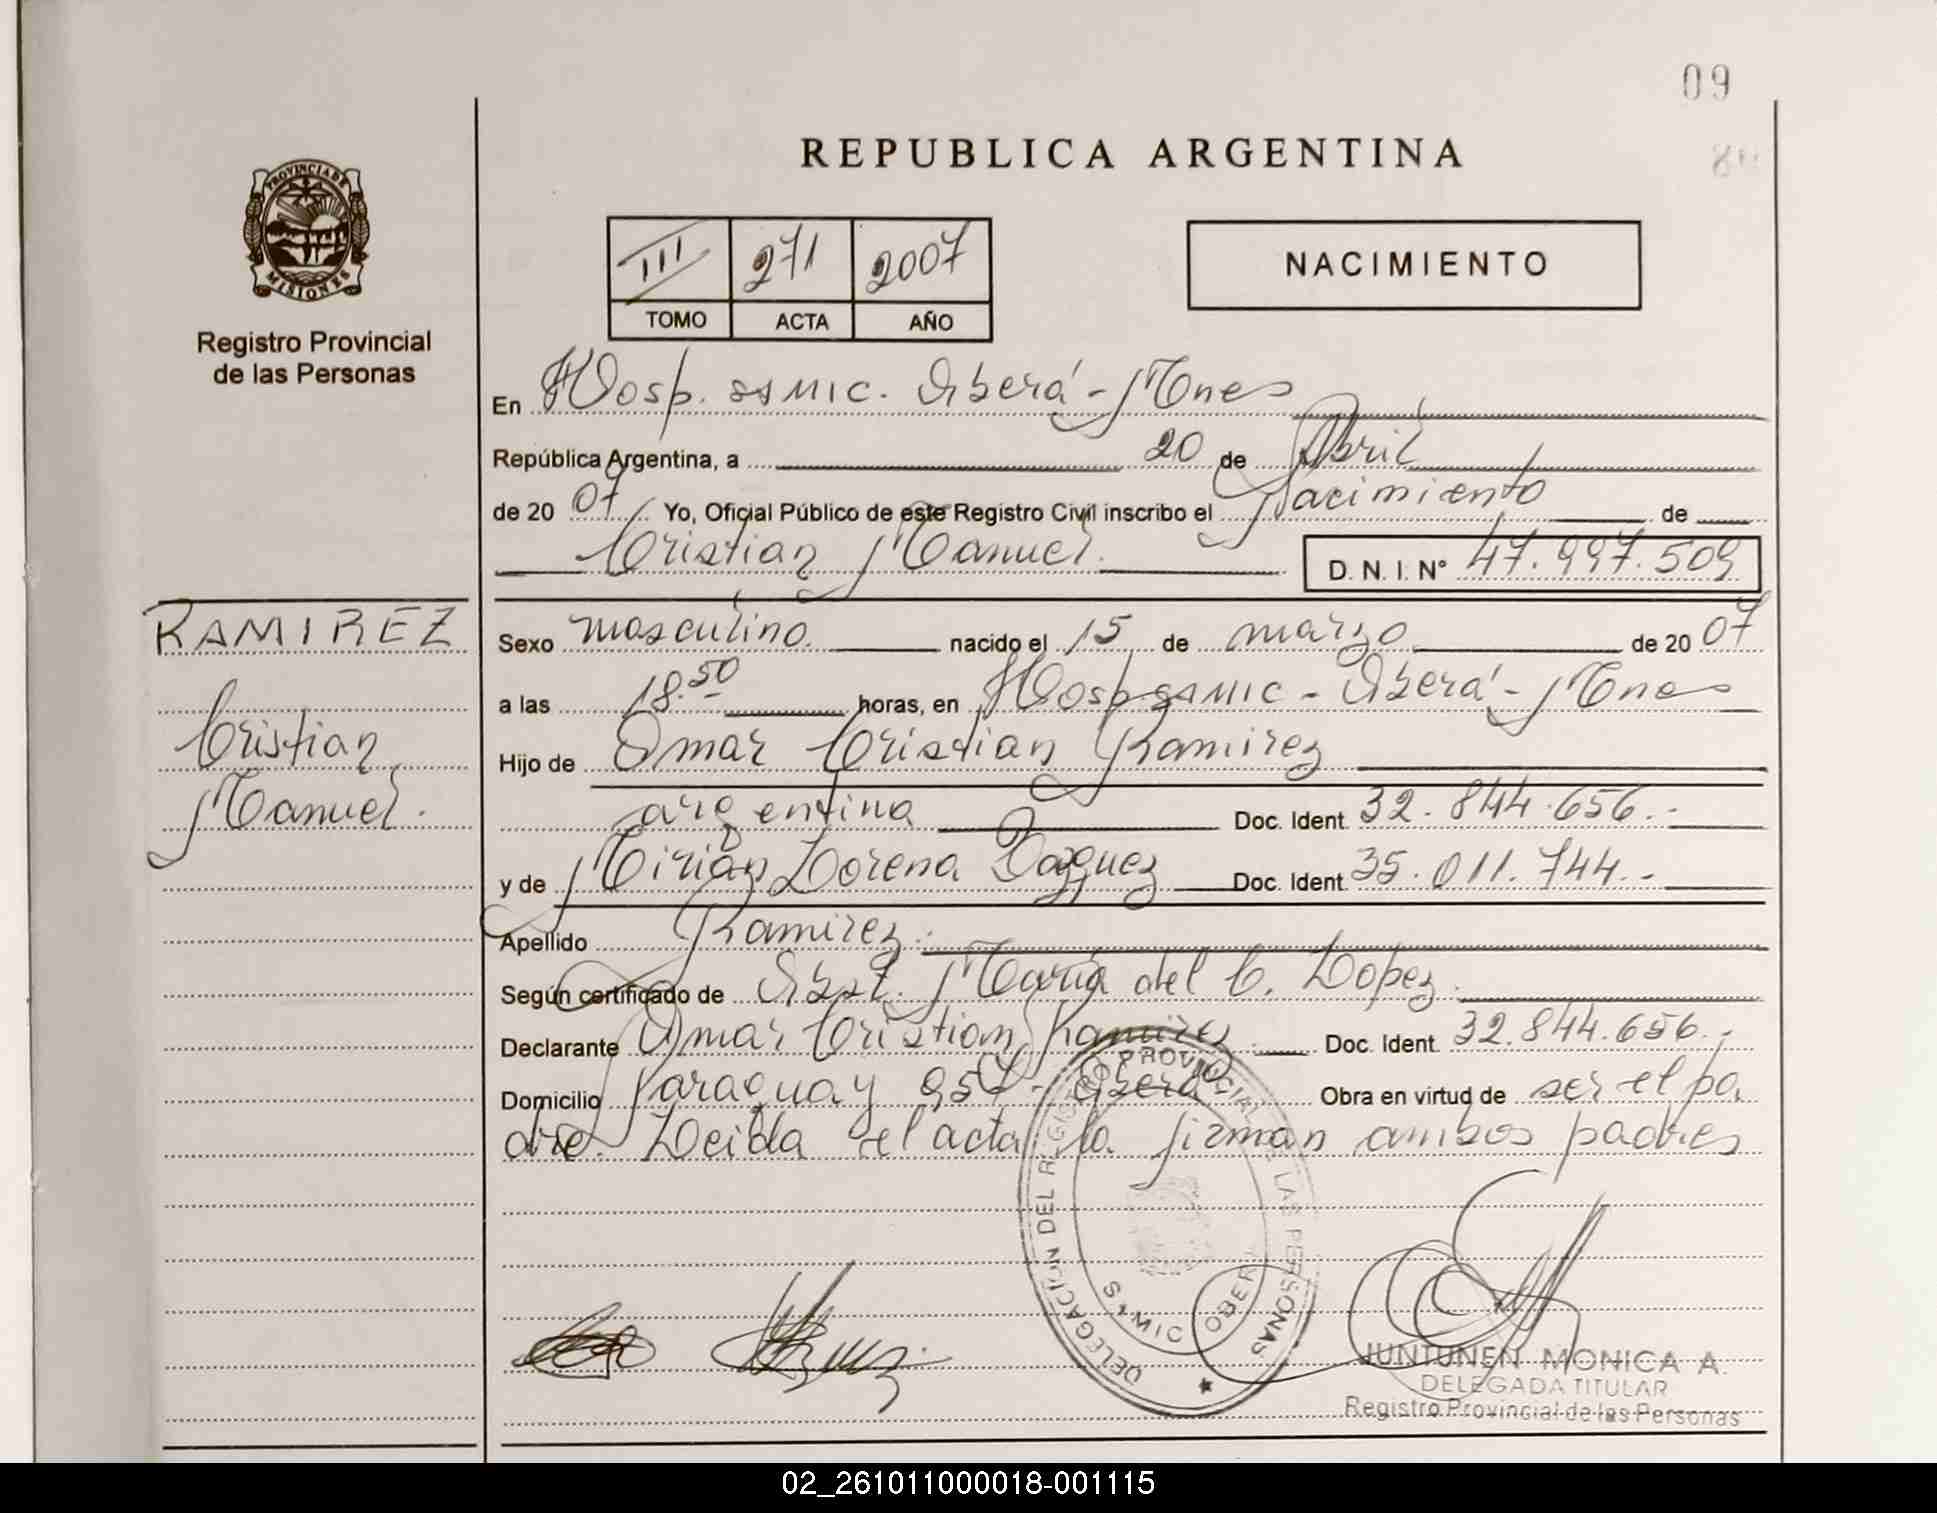 09
REPUBLICA ARGENTINA
PROVINCIA DE
MISIONES
Registro Provincial
de las Personas
III 271 2007
TOMO ACTA AÑO
NACIMIENTO
En Hosp. SAMIC. Oberá - Mnes
República Argentina, a 20 de Abril
de 2007 Yo, Oficial Público de este Registro Civil inscribo el Nacimiento de
Cristian Manuel. D. N. I. N° 47.997.509
RAMIREZ
Cristian
Manuel.
Sexo masculino. nacido el 15 de marzo de 2007
a las 18.50 horas, en Hosp SAMIC - Oberá - Mnes
Hijo de Omar Cristian Ramirez
argentina Doc. Ident. 32.844.656.-
y de Mirian Lorena Vazquez Doc. Ident. 35.011.744.-
Apellido Ramirez.
Según certificado de Obst. María del C. Lopez.
Declarante Omar Cristian Ramirez Doc. Ident. 32.844.656.-
Domicilio Paraguay Oberá Obra en virtud de ser el pa
dre. Leida el acta la firman ambos padres
DELEGACIÓN DEL REGISTRO PROVINCIAL DE LAS PERSONAS
SAMIC OBERÁ
JUNTUNEN MONICA A.
DELEGADA TITULAR
Registro Provincial de las Personas
02_261011000018-001115